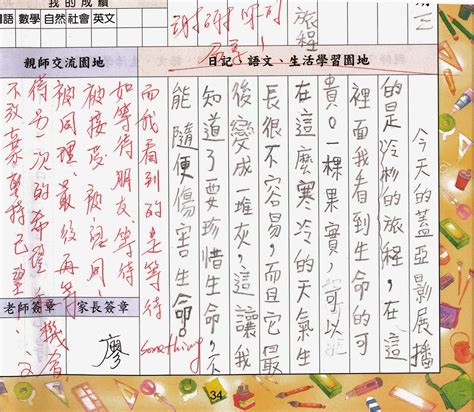 我的成績
國語 數學 自然 社會 英文
期三
謝謝你的分享！
旅程
親師交流園地
日記、語文、生活學習園地
今天的蓋亞影展播
的是冷杉的旅程，在這
裡面我看到生命的可
貴。一棵果實，可以
在這麼寒冷的天氣生
長很不容易，而且它
後變成一堆灰，這讓我
知道了要珍惜生命，不
能隨便傷害生命。
而我看到的是等待
something
如等待朋友、等待
被接受、被認同、
被同理，最後再等
待另一次的希望機會
不放棄對自己
老師簽章
家長簽章
廖
34